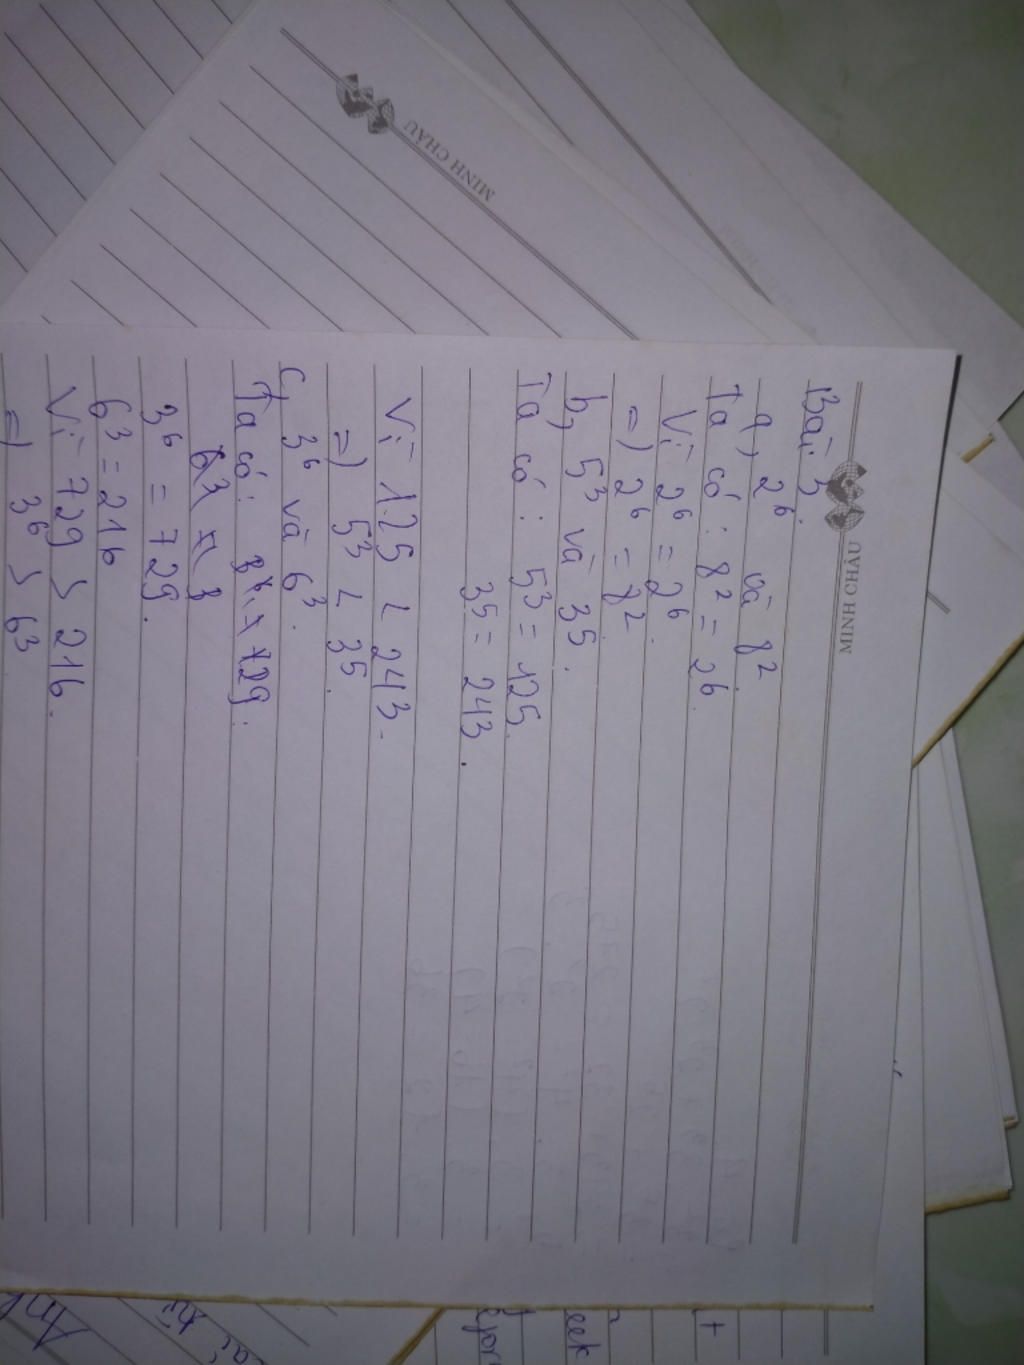 MINH CHÂU
MINH CHÂU
Bài 3.
a, 2⁶ và 8².
Ta có : 8² = 2⁶.
Vì 2⁶ = 2⁶.
=) 2⁶ = 8²
b, 5³ và 3⁵.
Ta có : 5³ = 125.
3⁵ = 243.
Vì 125 < 243.
=) 5³ < 3⁵.
c, 3⁶ và 6³.
Ta có :
3⁶ = 729.
6³ = 216
Vì 729 > 216.
=) 3⁶ > 6³
eek